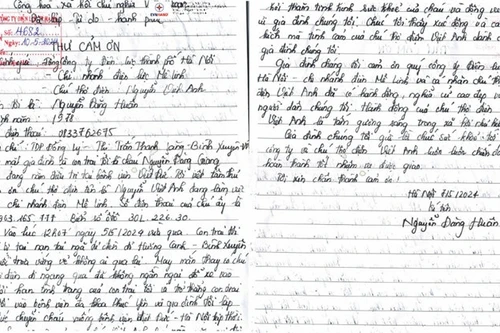 Cộng hòa xã hội chủ nghĩa V
Độc lập - Tự do - hạnh phúc
Số: 4682
Ngày: 10-5-
THƯ CẢM ƠN
Kính gửi: Tổng Công ty Điện lực thành phố Hà Nội
Chi nhánh điện lực Mê linh
Chú thợ điện: Nguyễn Việt Anh
tên tôi là: Nguyễn Đăng Huân
sinh năm: 1978
điện thoại: 0833762675
chỉ: TDP Đông Lý - Thị Trấn Thanh Lãng - Bình Xuyên - V
mặt gia đình là con trai tôi là cháu Nguyễn Đăng
đang nằm điều trị tại bệnh viện Việt Đức. Tôi viết tâm thư
ơn chú thợ điện tên là Nguyễn Việt Anh đang làm việc
chi nhánh điện Mê linh. Số điện thoại của chú ấy là
963.165.111 Biển số ôtô 30L-226.30.
Vào lúc 12h07 ngày 5/5/2024 vừa qua. Con trai tôi
bị tai nạn tại ngã tư chân đi Hương Canh - Bình Xuyên
trưa vắng vẻ không ai qua lại. May mắn thay có chú
điện đi ngang qua đã không ngần ngại đỗ xe vào
hỏi han tình trạng con trai tôi và trở thẳng con trai
tôi vào bệnh viện đa khoa Phúc Yên và gia đình tôi lập
tức chuyển cháu xuống bệnh viện Việt Đức - Hà Nội kịp thời.
hỏi thăm tình hình sức khỏe của cháu và động viê
và gia đình chúng tôi. Cháu tôi thấy xúc động và cả
kích mà tình cảm của chú thợ điện Việt Anh dành c
gia đình chúng tôi.
Gia đình chúng tôi cảm ơn quý công ty Điện lực
Hà Nội - chi nhánh điện Mê Linh và cá nhân chú thợ
điện Việt Anh đã có hành động, nghĩa cử cao đẹp vì
người dân chúng tôi. Hành động của chú thợ điện
Việt Anh là tấm gương sáng trong xã hội cho
Gia đình chúng tôi gửi lời chúc sức khỏe tới
công ty và chú thợ điện Việt Anh luôn luôn chân
hoàn thành tốt nhiệm vụ được giao.
Tôi xin chân thành cảm ơn!
Hà Nội 7/5/2024
Kí tên
Nguyễn Đăng Huân